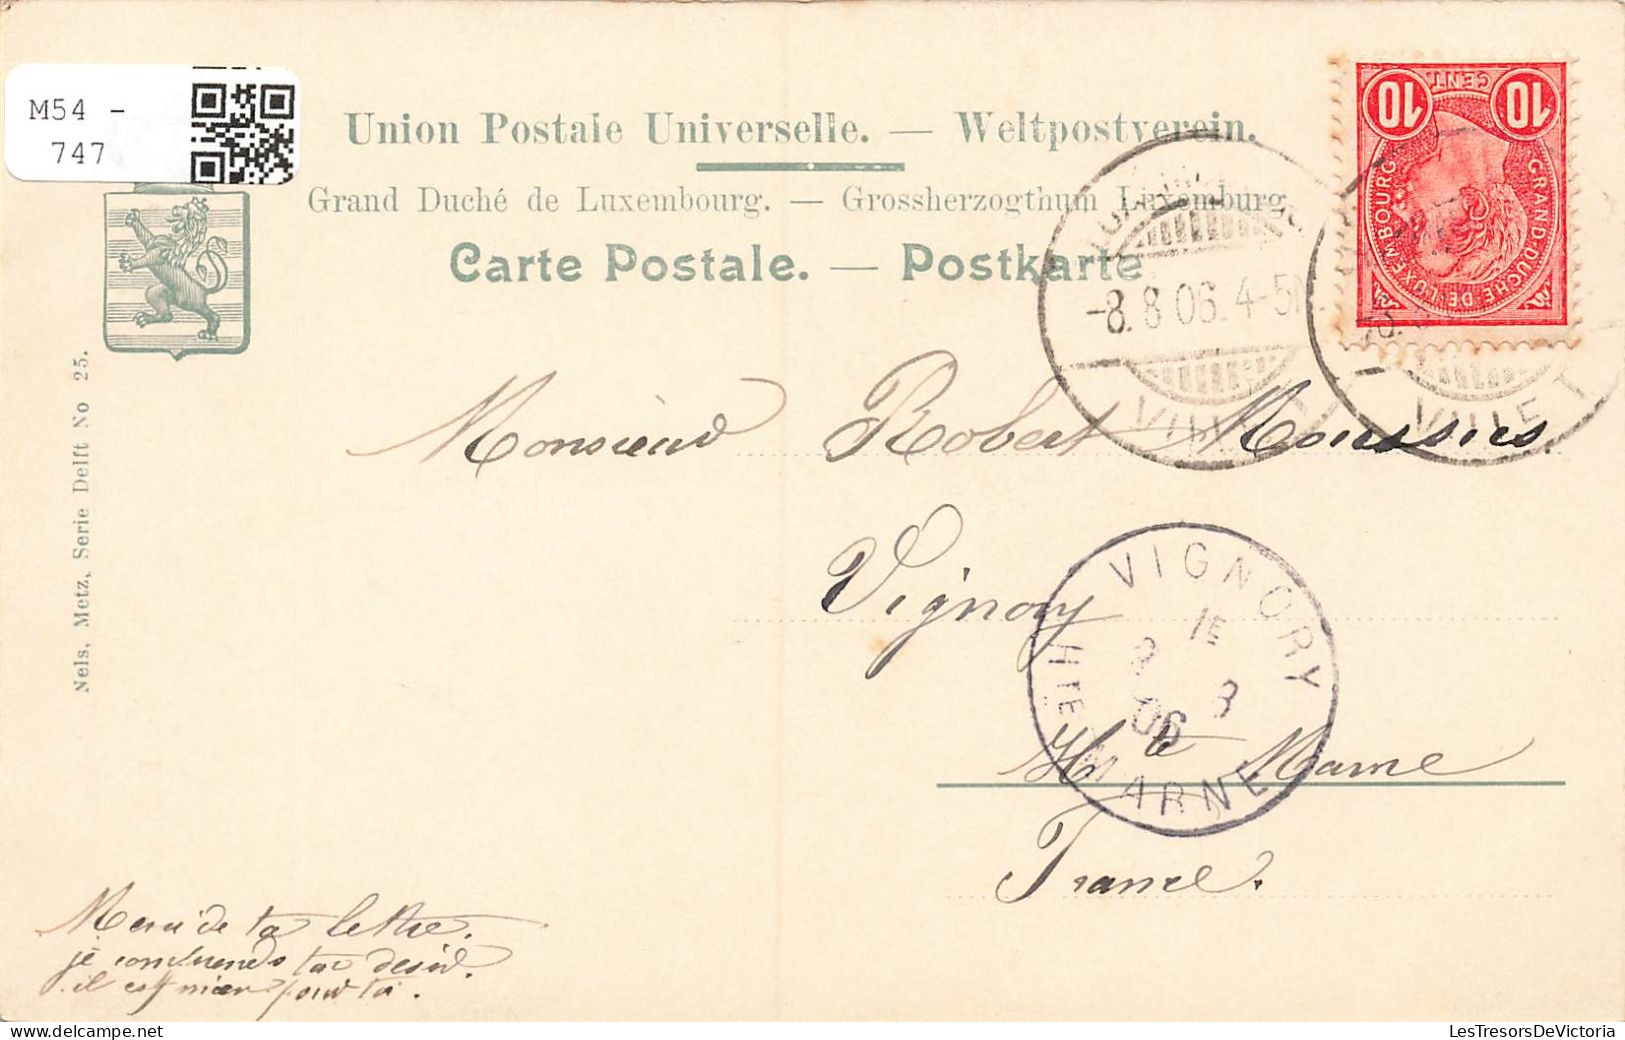 M54 -
747
Union Postale Universelle. — Weltpostverein.
Grand Duché de Luxembourg. — Grossherzogthum Luxemburg
Carte Postale. — Postkarte
10 CENT. 10
GRAND-DUCHÉ DE LUXEMBOURG
-8.8.06.4-5N
VILLE
VILLE
Nels, Metz, Serie Delft No 25.
Monsieur Robert
Vignory
VIGNORY
1E
8
06
HTE MARNE
Hte Marne
France.
Merci de ta lettre.
je comprends ton désir.
il est mien pour toi.
LesTresorsDeVictoria